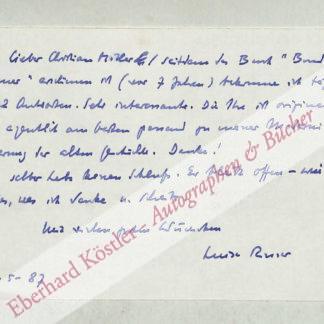 Lieber Christian Müller / seitdem das Buch "Brud
" erschienen ist (vor 7 Jahren) bekomme ich täg
2 Antworten. Sehr interessante. Die Ihre ist original
eigentlich am besten passend zu meiner
der alten Geschichte. Danke!
selber habe keinen Schluß. Es bleibt offen - wie
was ich denke u. schreibe.
Mit vielen guten Wünschen
Luise Rinser
5-87
Eberhard Köstler - Autographen & Bücher